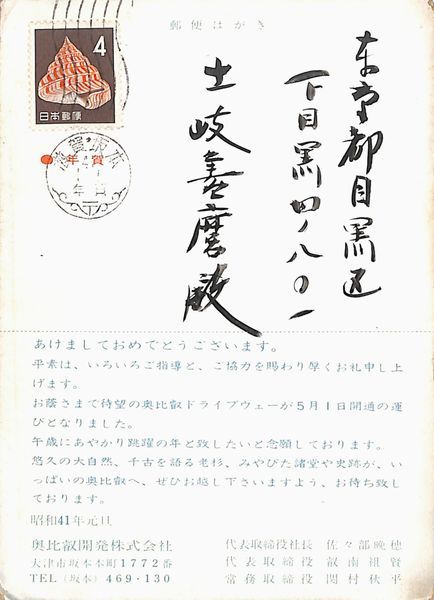 郵便はがき
4
日本郵便
年賀
東京都目黒区
下目黒四ノ八〇一
土岐善麿殿
あけましておめでとうございます。
平素は、いろいろご指導と、ご協力を賜わり厚くお礼申し上
げます。
お蔭さまで待望の奥比叡ドライブウェーが5月1日開通の運
びとなりました。
午歳にあやかり跳躍の年と致したいと念願しております。
悠久の大自然、千古を語る老杉、みやびた諸堂や史跡が、い
っぱいの奥比叡へ、ぜひお越し下さいますよう、お待ち致し
ております。
昭和41年元旦
奥比叡開発株式会社
大津市坂本本町1772番
TEL（坂本）469・130
代表取締役社長 佐々部晩穂
代表取締役 叡南祖賢
常務取締役 関村秋平